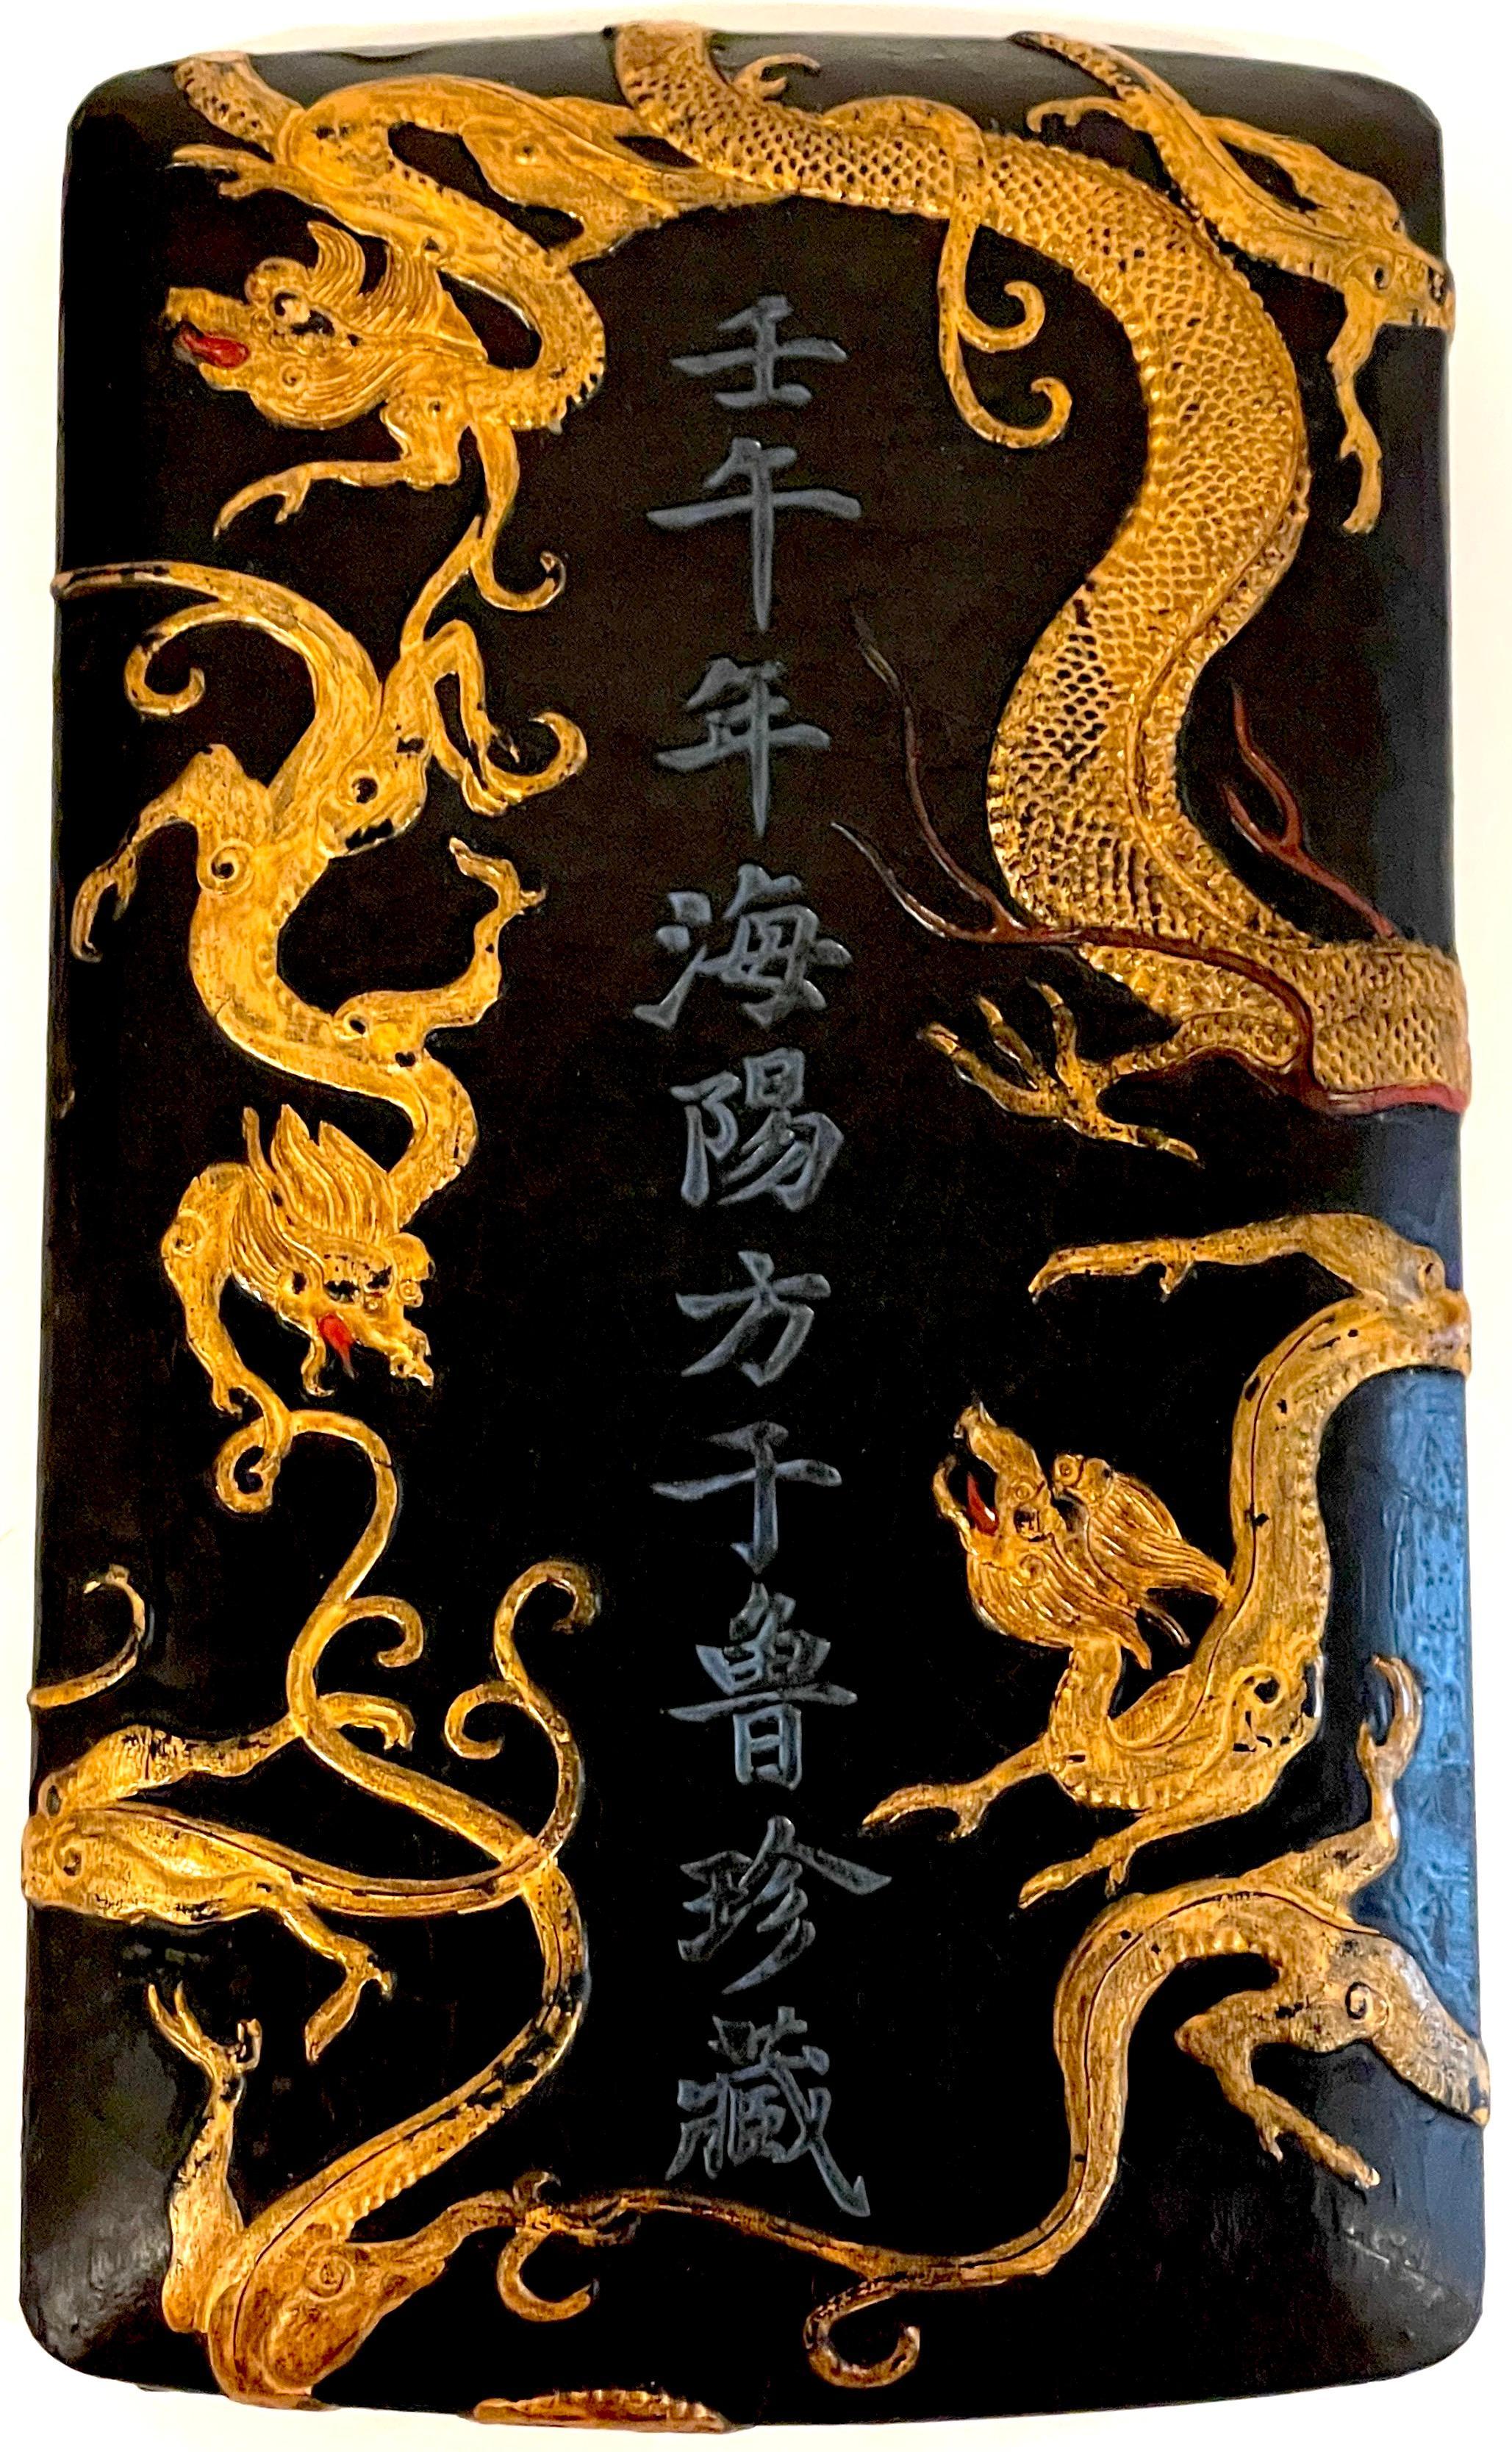 壬午年海陽方于魯珍藏